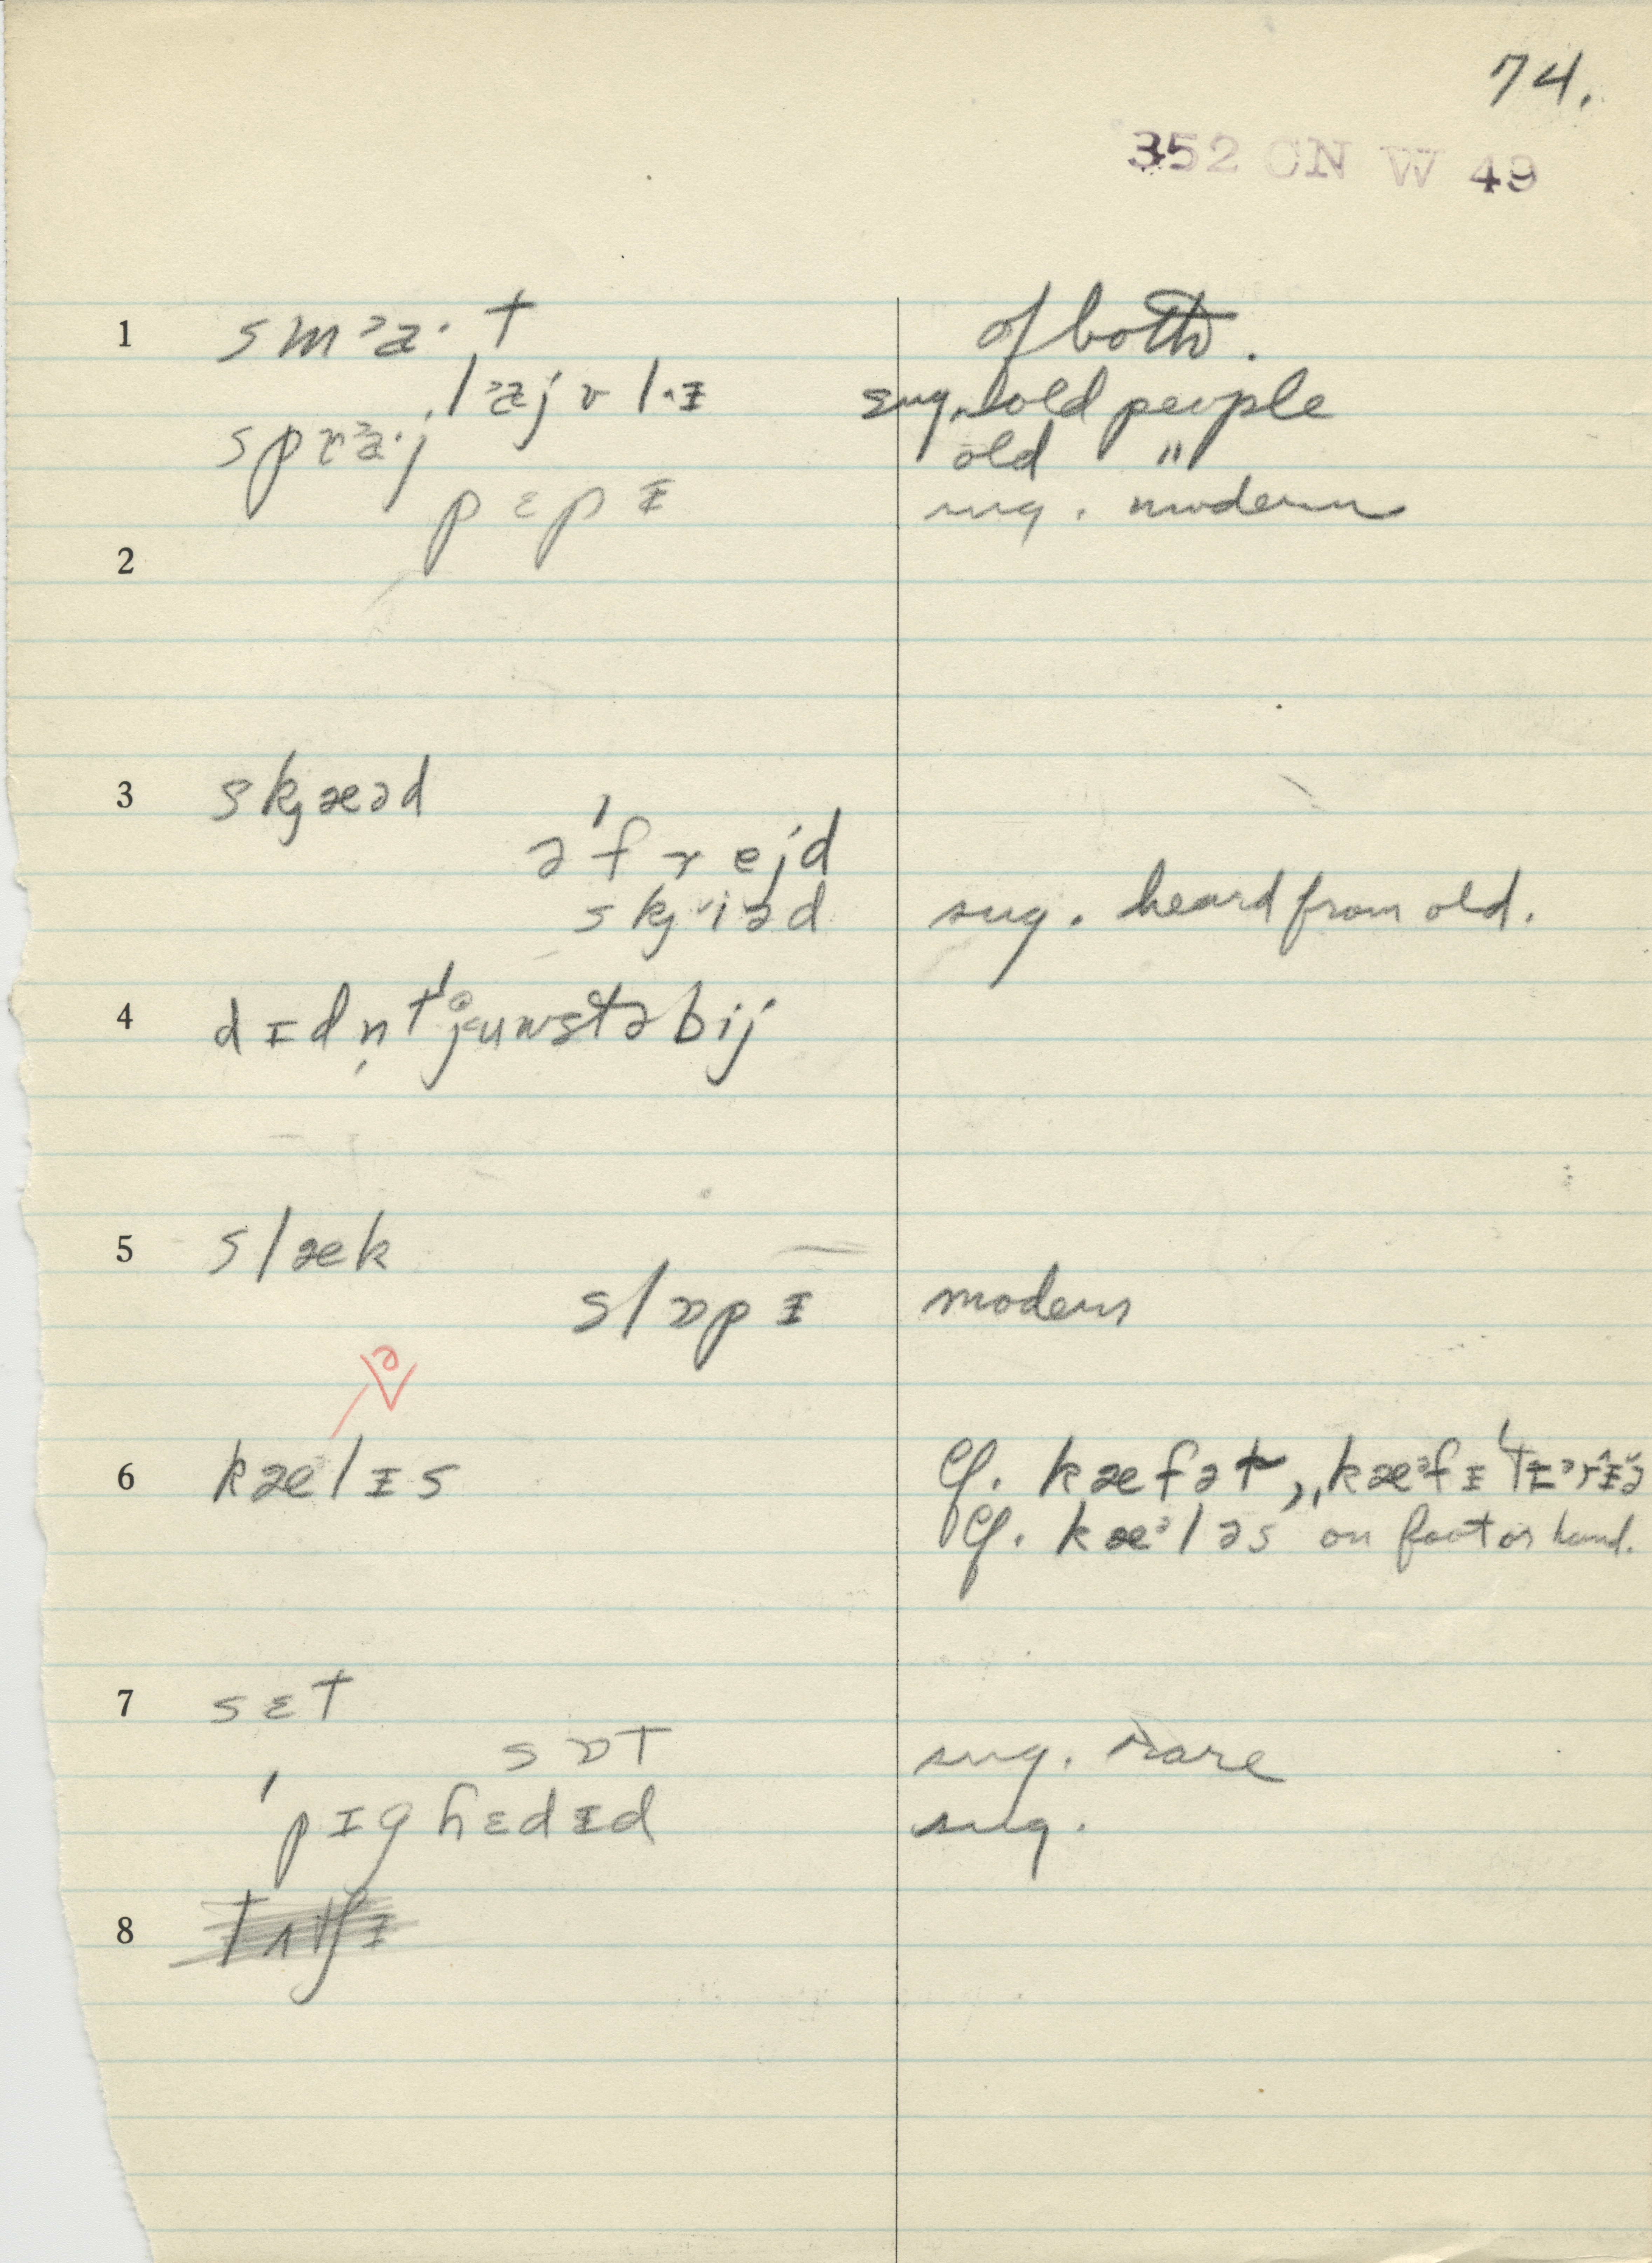 74.
352 CN W 49
1 smᵊa·t of both.
ˌlᵊæjvlᵻ sug. old people
sprᵊa·j old "
pɛpᵻ sug. modern
2
3 skjæəd
ə'frejd
skjiəd sug. heard from old.
4 dɪdn̩t'juwstəbij
5 slæk
slɒpᵻ modern
6 kæᵊlɪs ə Cf. kæfət, kæᵊfᵻ
Cf. kæᵊləs on foot or hand.
7 sɛt
sɒt sug. rare
'pɪghɛdᵻd sug.
8